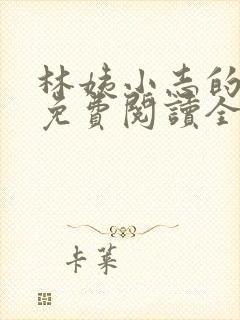 林姨小志的
免費閱讀全
卡萊